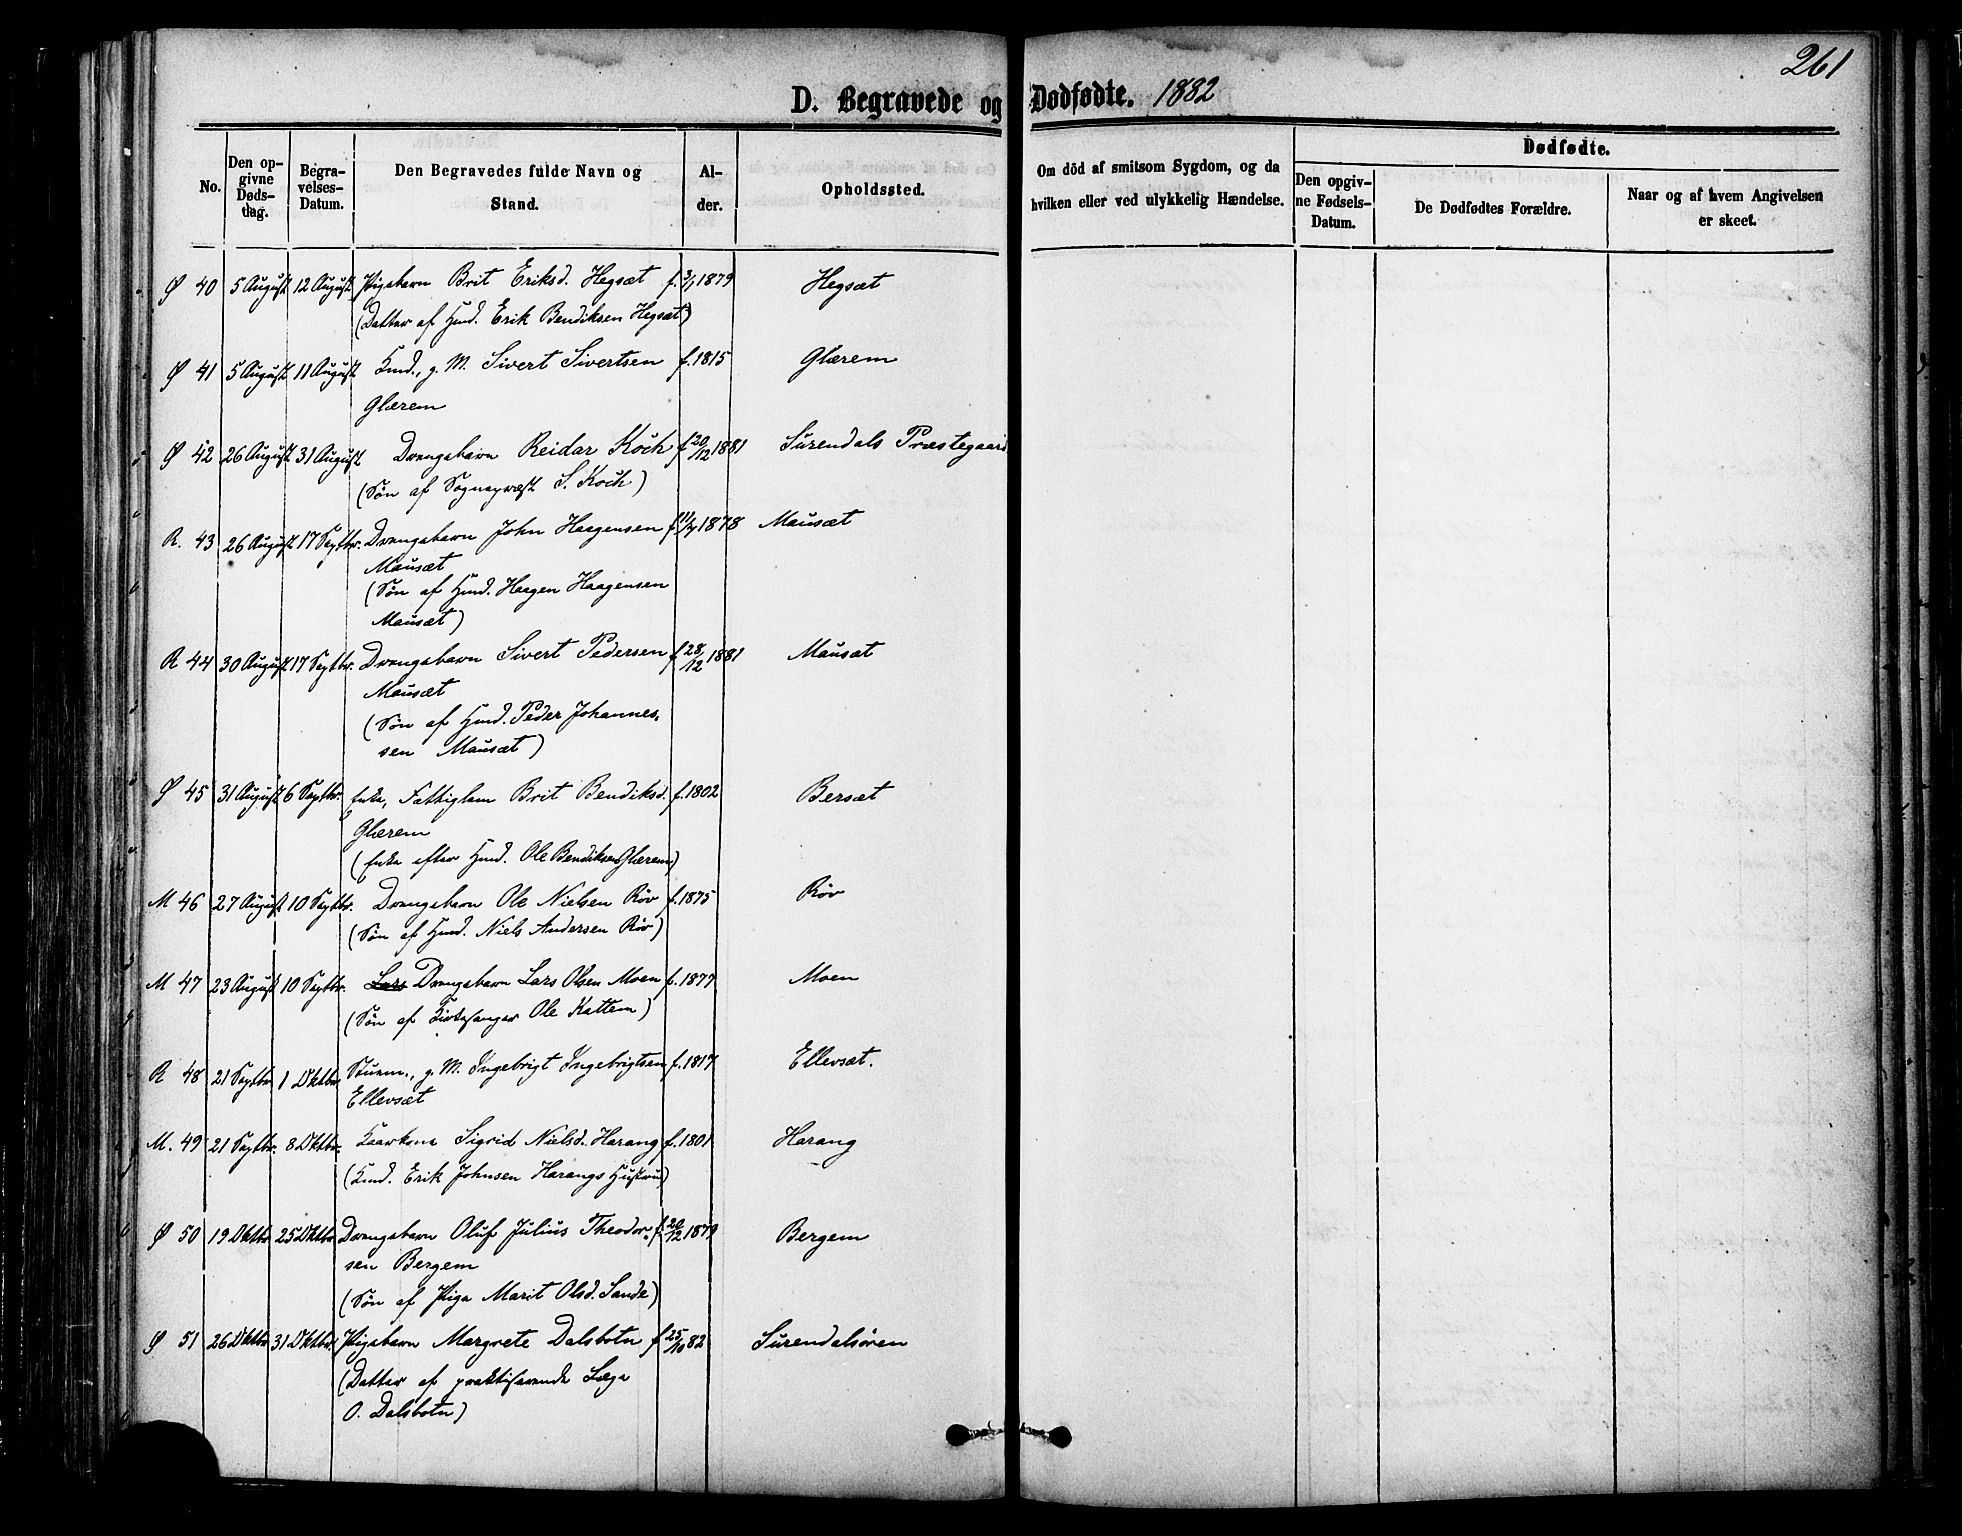 261
D. Begravede og Dødfødte. 1882
No.
Den opgivne Dødsdag.
Begravelses-Datum.
Den Begravedes fulde Navn og Stand.
Alder.
Opholdssted.
Om död af smitsom Sygdom, og da hvilken eller ved ulykkelig Hændelse.
Dødfødte.
Den opgivne Fødsels-Datum.
De Dødfødtes Forældre.
Naar og af hvem Angivelsen er skeet.
Ø 40 5 August 12 August Pigebarn Brit Eriksd. Hegsæt f. 3/1 1879 Hegsæt
(Datter af Gmd. Erik Bendiksen Hegsæt)
Ø 41 5 August 11 August Kmd., g. M. Sivert Sivertsen f. 1815 Glærem
Glærem
Ø 42 26 August 31 August Drengebarn Reidar Koch f 20/12 1881 Surendals Præstegaard
(Søn af Sognepræst S. Koch)
R. 43 26 August 17 Septbr. Drengebarn John Haagensen f 11/7 1878 Mausæt
Mausæt
(Søn af Gmd. Haagen Haagensen
Mausæt)
R 44 30 August 17 Septbr. Drengebarn Sivert Pedersen f 28/12 1881 Mausæt
Mausæt
(Søn af Gmd. Peder Johannes-
sen Mausæt)
Ø 45 31 August 6 Septbr. Enke, Fattiglem Brit Bendiksd. f. 1802 Bersæt
Glærem
(Enke efter Gmd. Ole Bendiksen Glærem)
M 46 27 August 10 Septbr. Drengebarn Ole Nielsen Röv f. 1875 Röv
(Søn af Gmd. Niels Andersen Röv)
M 47 23 August 10 Septbr. Lars Drengebarn Lars Olsen Moen f. 1877 Moen
(Søn af Kirkesanger Ole Kattem)
R 48 21 Septbr. 1 Oktbr. g. M. Ingebrigt Ingebrigtsen f. 1817 Ellevsæt.
Ellevsæt
M. 49 21 Septbr. 8 Oktbr. Kaarkone Sigrid Nielsd. Harang f. 1801 Harang
(Kmd. Erik Johnsen Harangs Hustru)
Ø 50 19 Oktbr 25 Oktbr Drengebarn Oluf Julius Theodor- f. 20/12 1879 Bergem
sen Bergem
(Søn af Pige Marit Olsd. Sande)
Ø 51 26 Oktbr 31 Oktbr. Pigebarn Margrete Dalsbotn f 25/10 82 Surendalsören
(Datter af praktiserende Læge
O. Dalsbotn)